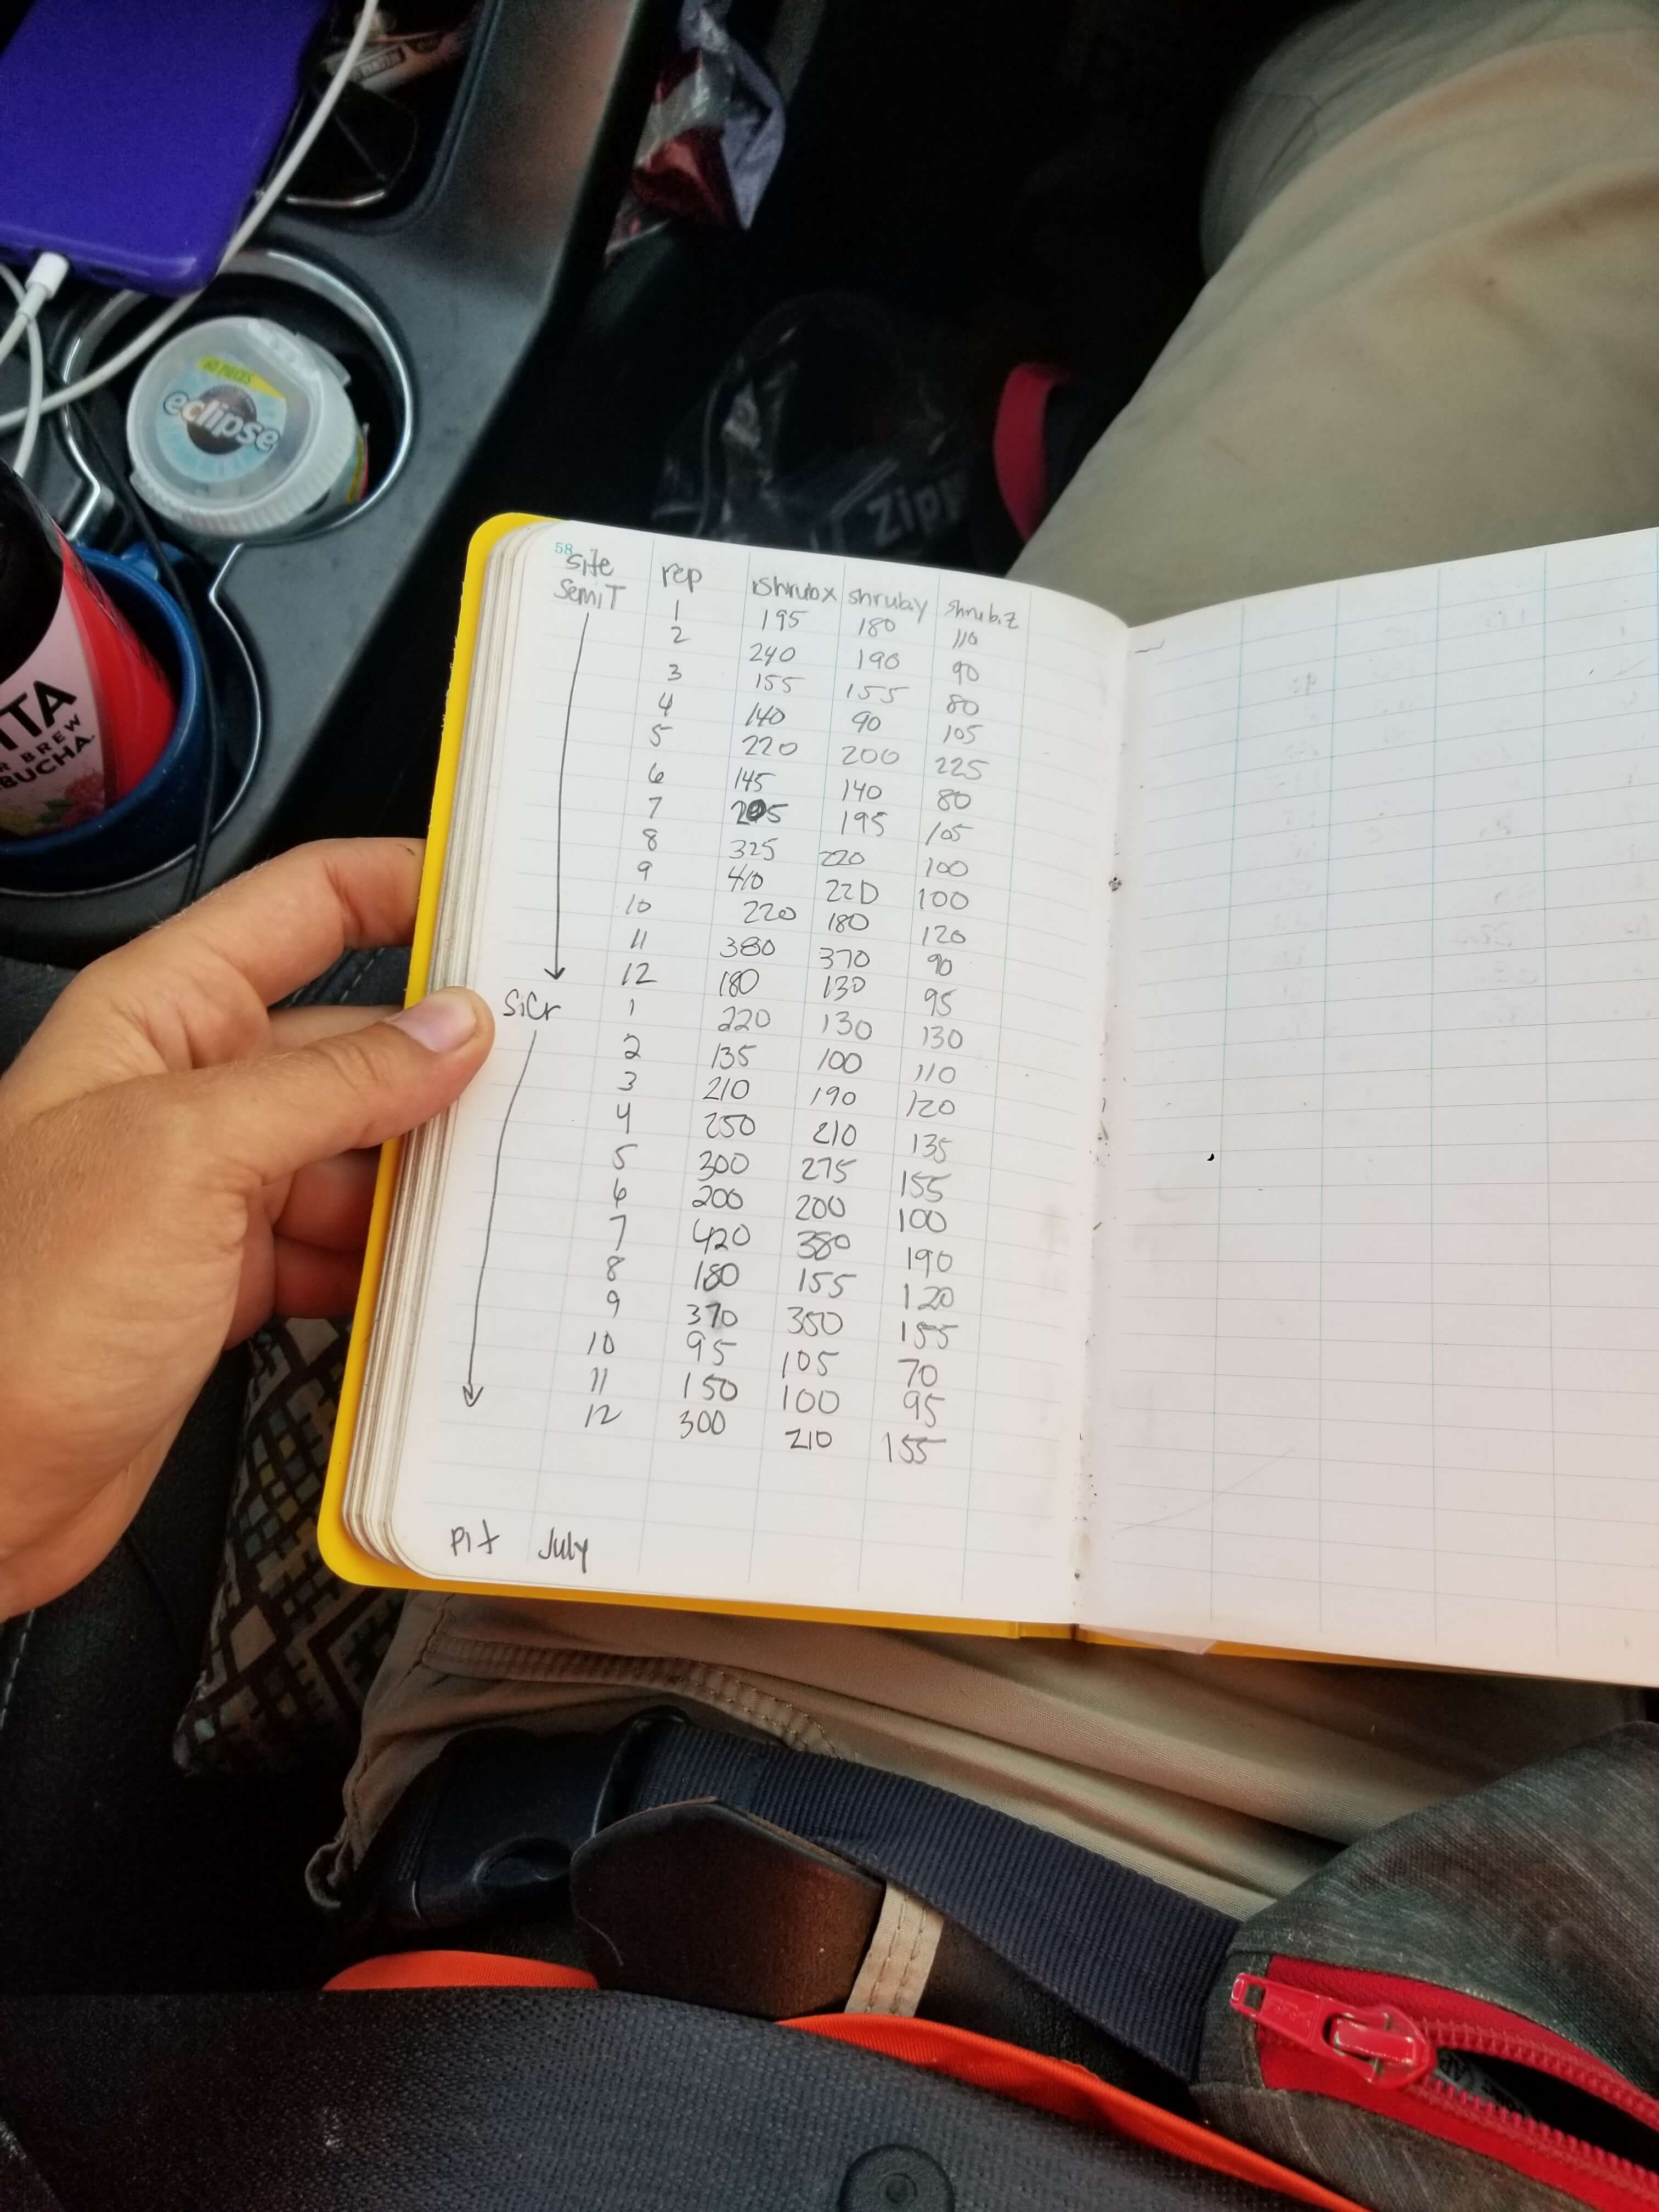 60 PIECES
eclipse
Zipp
TTA
R BREW
BUCHA
58
site rep shrubx shruby shrub.z
SemiT 1 195 180 110
2 240 190 90
3 155 155 80
4 140 90 105
5 220 200 225
6 145 140 80
7 205 195 105
8 325 220 100
9 410 220 100
10 220 180 120
11 380 370 90
12 180 130 95
SiCr 1 220 130 130
2 135 100 110
3 210 190 120
4 250 210 135
5 300 275 155
6 200 200 100
7 420 380 190
8 180 155 120
9 370 350 155
10 95 105 70
11 150 100 95
12 300 210 155
Pit July